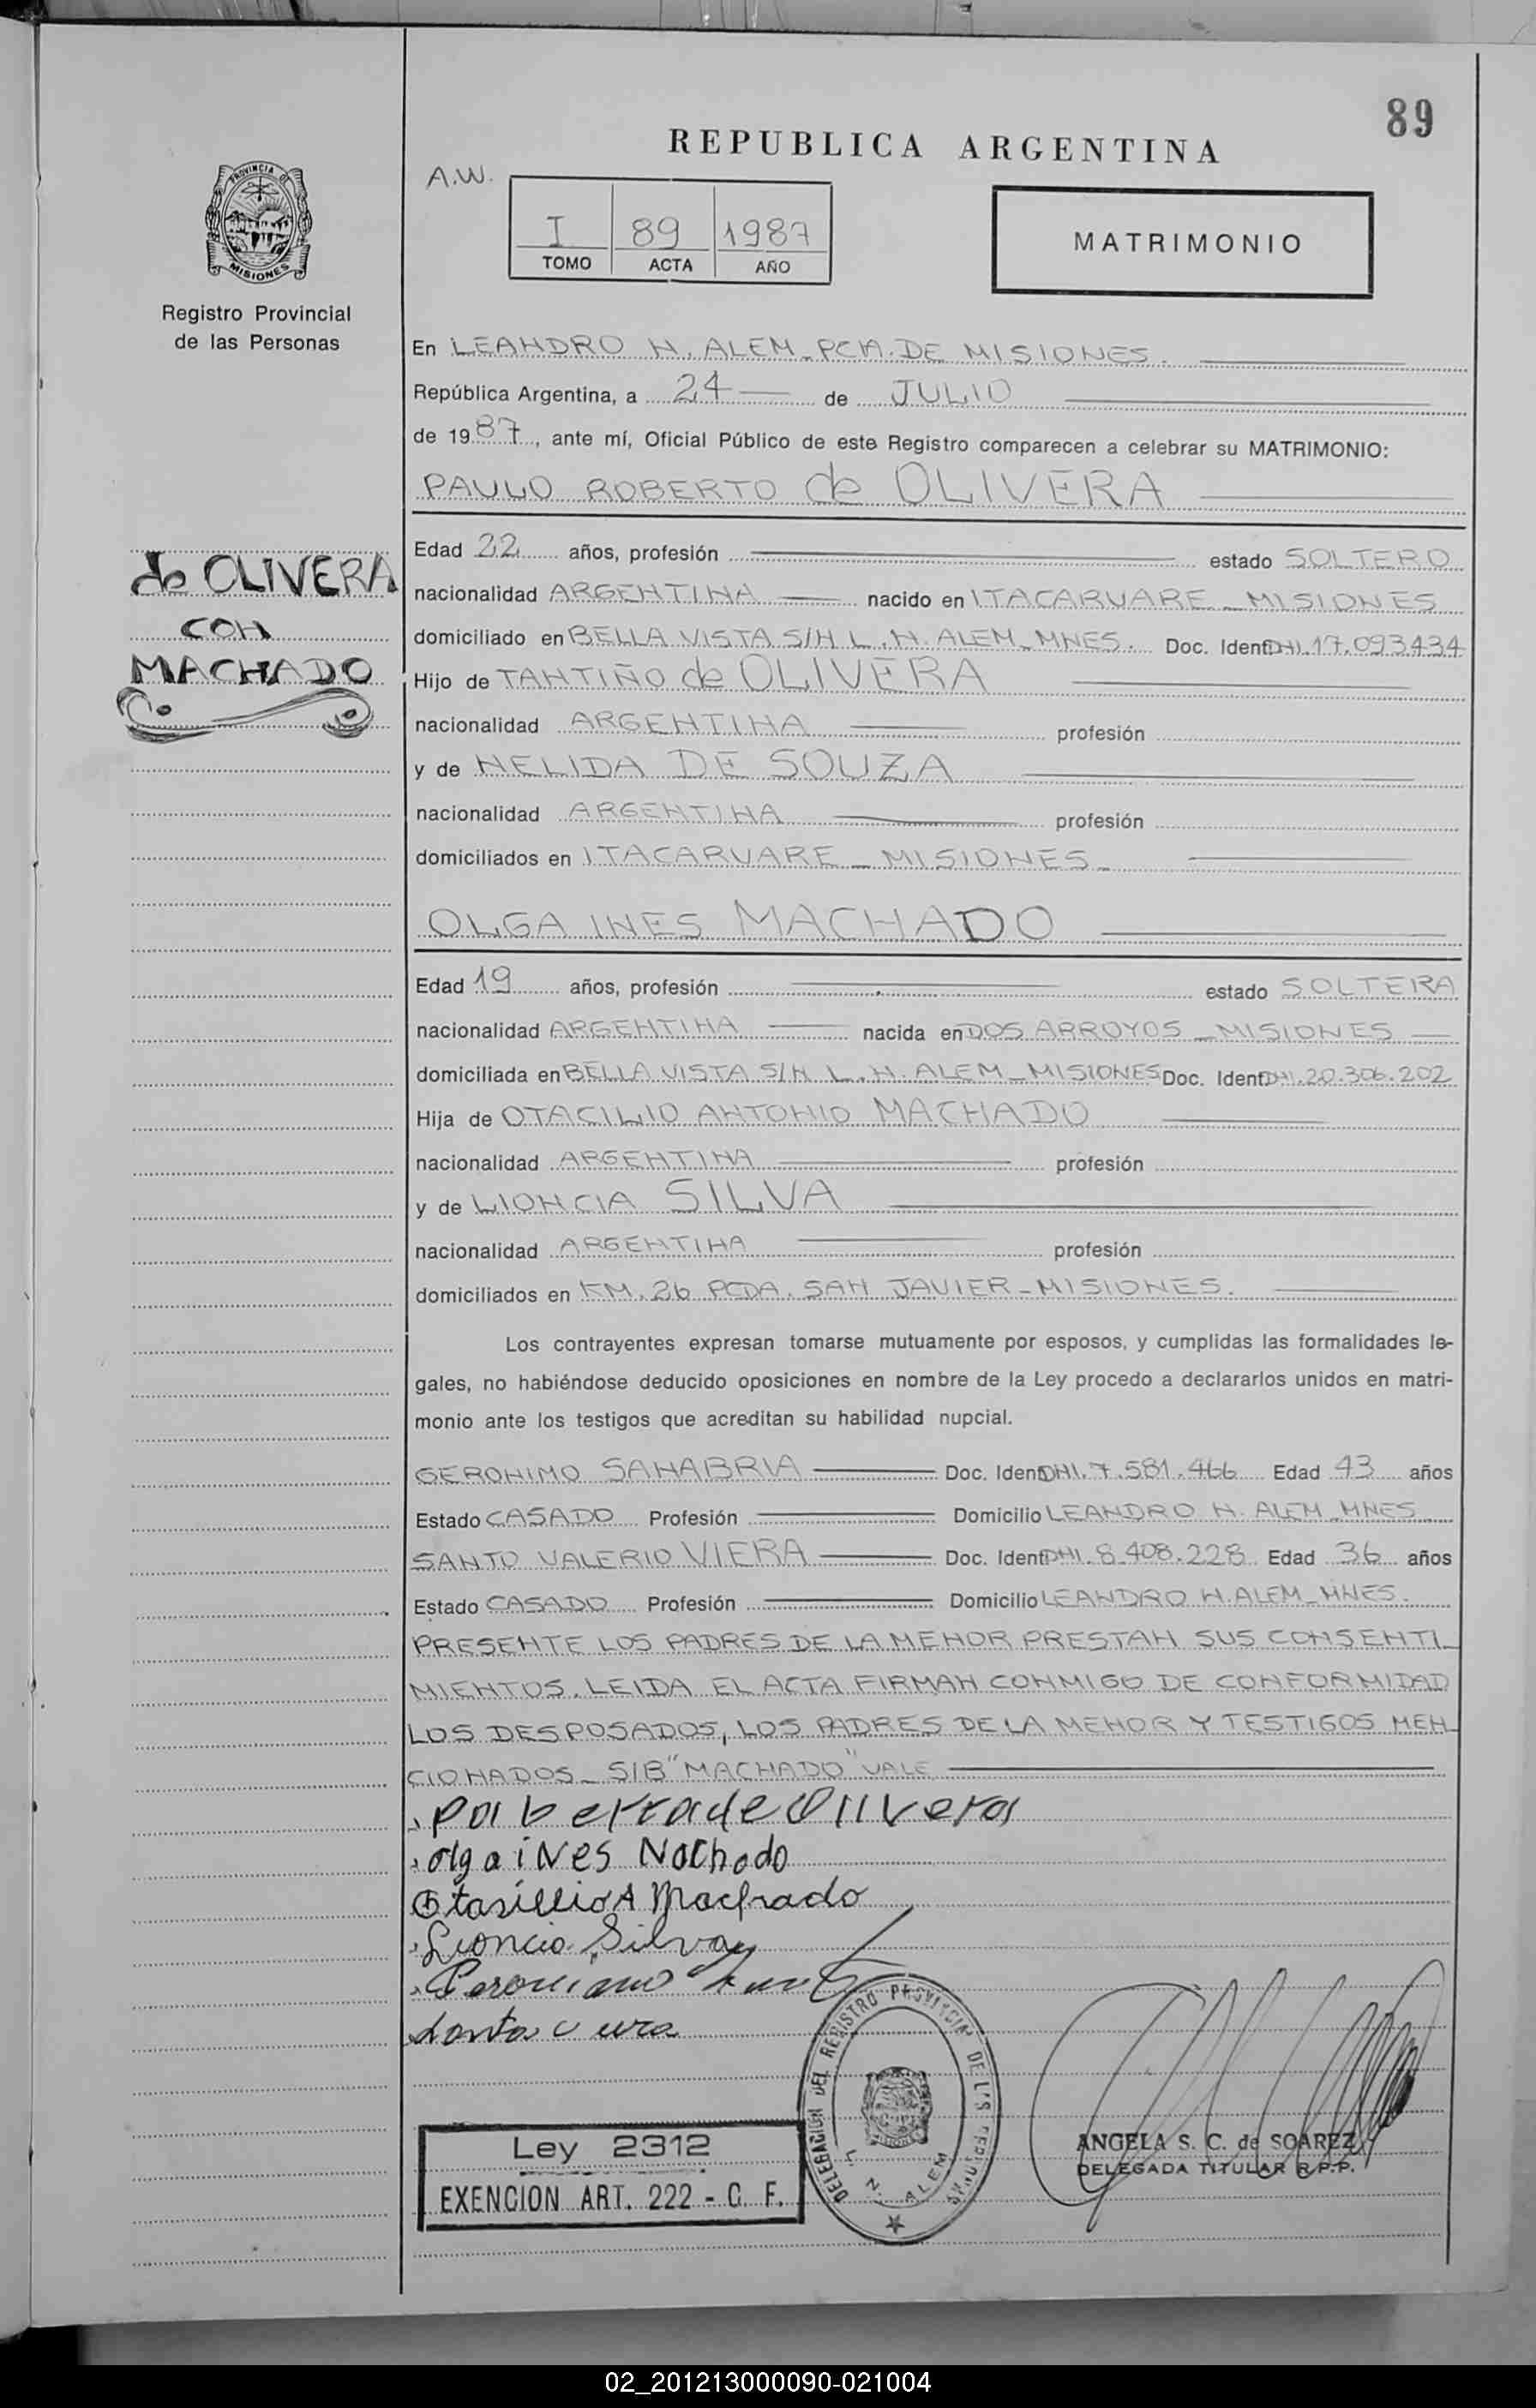 89
REPUBLICA ARGENTINA
A.W.
I 89 1987
TOMO ACTA AÑO
MATRIMONIO
PROVINCIA DE
MISIONES
Registro Provincial
de las Personas
En LEANDRO N. ALEM_PCIA. DE MISIONES.
República Argentina, a 24 de JULIO
de 1987, ante mí, Oficial Público de este Registro comparecen a celebrar su MATRIMONIO:
PAULO ROBERTO de OLIVERA
de OLIVERA
CON
MACHADO
Edad 22 años, profesión estado SOLTERO
nacionalidad ARGENTINA nacido en ITACARUARE_MISIONES
domiciliado en BELLA VISTA S/N L.N. ALEM_MNES. Doc. Ident. DNI.17.093434
Hijo de TANTIÑO de OLIVERA
nacionalidad ARGENTINA profesión
y de NELIDA DE SOUZA
nacionalidad ARGENTINA profesión
domiciliados en ITACARUARE_MISIONES_
OLGA INES MACHADO
Edad 19 años, profesión estado SOLTERA
nacionalidad ARGENTINA nacida en DOS ARROYOS_MISIONES
domiciliada en BELLA VISTA S/N L.N. ALEM_MISIONES Doc. Ident. DNI.20.306.202
Hija de OTACILIO ANTONIO MACHADO
nacionalidad ARGENTINA profesión
y de LIONCIA SILVA
nacionalidad ARGENTINA profesión
domiciliados en KM. 26 PCDA. SAN JAVIER_MISIONES.
Los contrayentes expresan tomarse mutuamente por esposos, y cumplidas las formalidades le-
gales, no habiéndose deducido oposiciones en nombre de la Ley procedo a declararlos unidos en matri-
monio ante los testigos que acreditan su habilidad nupcial.
GERONIMO SANABRIA Doc. Ident. DNI.7.581.466 Edad 43 años
Estado CASADO Profesión Domicilio LEANDRO N. ALEM_MNES
SANTO VALERIO VIERA Doc. Ident. DNI.8.408.228 Edad 36 años
Estado CASADO Profesión Domicilio LEANDRO N. ALEM_MNES.
PRESENTE LOS PADRES DE LA MENOR PRESTAN SUS CONSENTI_
MIENTOS. LEIDA EL ACTA FIRMAN CONMIGO DE CONFORMIDAD
LOS DESPOSADOS, LOS PADRES DE LA MENOR Y TESTIGOS MEN_
CIONADOS_ S/B "MACHADO" VALE
de Olivera
olga iNes Nachado
Otasillio A Machado
Lioncia Silva
DELEGACION DEL REGISTRO PROVINCIAL DE LAS PERSONAS
L. N. ALEM
Ley 2312
EXENCION ART. 222 - C. F.
ANGELA S. C. de SOAREZ
DELEGADA TITULAR R.P.P.
02_201213000090-021004